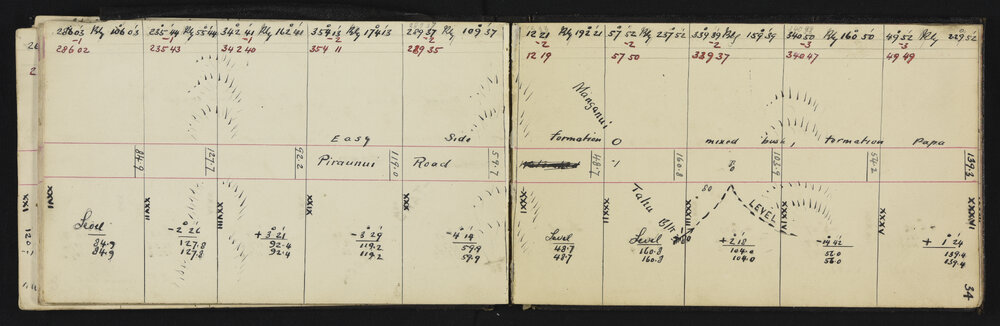 286 03 Rly 106 03
-1
286 02
235 44 Rly 55 44
-1
235 43
342 41 Rly 162 41
-1
342 40
354 13 Rly 174 13
-2
354 11
289 37 Rly 109 37
-2
289 35
12 21 Rly 192 21
-2
12 19
57 52 Rly 237 52
-2
57 50
339 39 Rly 159 39
-2
339 37
340 50 Rly 160 50
-3
340 47
49 52 Rly 229 52
-3
49 49
Manganui
Easy Side Formation O mixed bush, formation Papa
84.9
127.7
92.2
Piraunui
119.0
Road
59.7
48.7
160.8
103.9
139.3
XXVI
XXVII
XXVIII
XXIX
XXX
XXXI
XXXII
XXXIII
XXXIV
XXXV
XXXVI
Tahu
80
LEVEL
Level
84.9
84.9
-2° 26'
127.8
127.8
+3° 21'
92.4
92.4
-3° 29'
119.2
119.2
-4° 19'
59.9
59.9
Level
48.7
48.7
Level
160.8
160.8
+2° 18'
104.0
104.0
56.0
56.0
+1° 24'
139.4
139.4
34